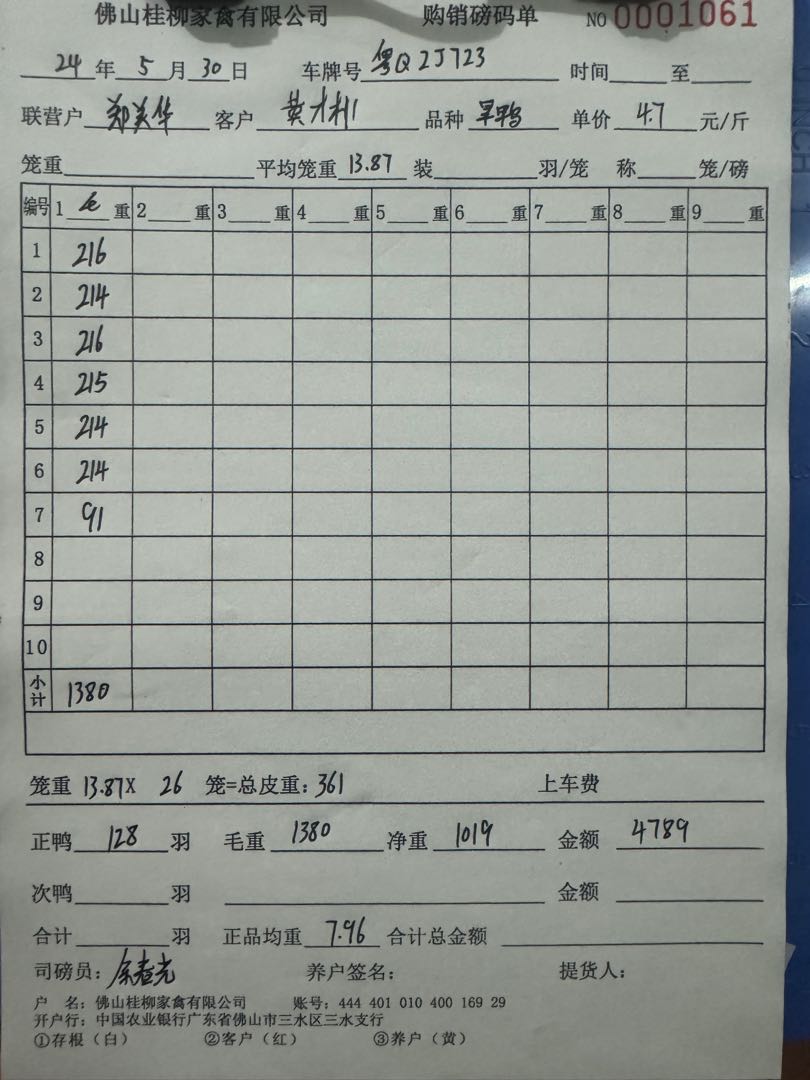 佛山桂柳家禽有限公司 购销磅码单 NO 0001061
24 年 5 月 30 日 车牌号 粤Q2J723 时间 至
联营户 郑美华 客户 黄才利 品种 旱鸭 单价 4.7 元/斤
笼重 平均笼重 13.87 装 羽/笼 称 笼/磅
编号 1 毛 重 2 重 3 重 4 重 5 重 6 重 7 重 8 重 9 重
1 216
2 214
3 216
4 215
5 214
6 214
7 91
8
9
10
小计 1380
笼重 13.87X 26 笼=总皮重: 361 上车费
正鸭 128 羽 毛重 1380 净重 1019 金额 4789
次鸭 羽 金额
合计 羽 正品均重 7.96 合计总金额
司磅员: 养户签名: 提货人:
户 名: 佛山桂柳家禽有限公司 账号: 444 401 010 400 169 29
开户行: 中国农业银行广东省佛山市三水区三水支行
①存根（白） ②客户（红） ③养户（黄）